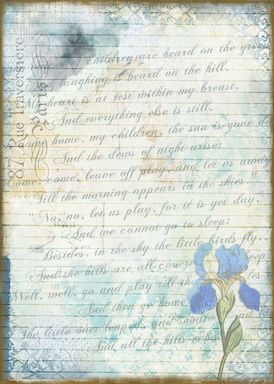 children are heard on the green
laughing is heard on the hill,
My heart is at rest within my breast,
And everything else is still.
Come home, my children, the sun is gone do
And the dews of night arise;
Come, come, leave off play, and let us away
Till the morning appears in the skies
No, no, let us play, for it is yet day,
And we cannot go to sleep;
Besides, in the sky the little birds fly,
And the hills are all
Well, well, go and play till
And then go home
The little ones leaped, and shout
And all the hills
87, Rue Traversière